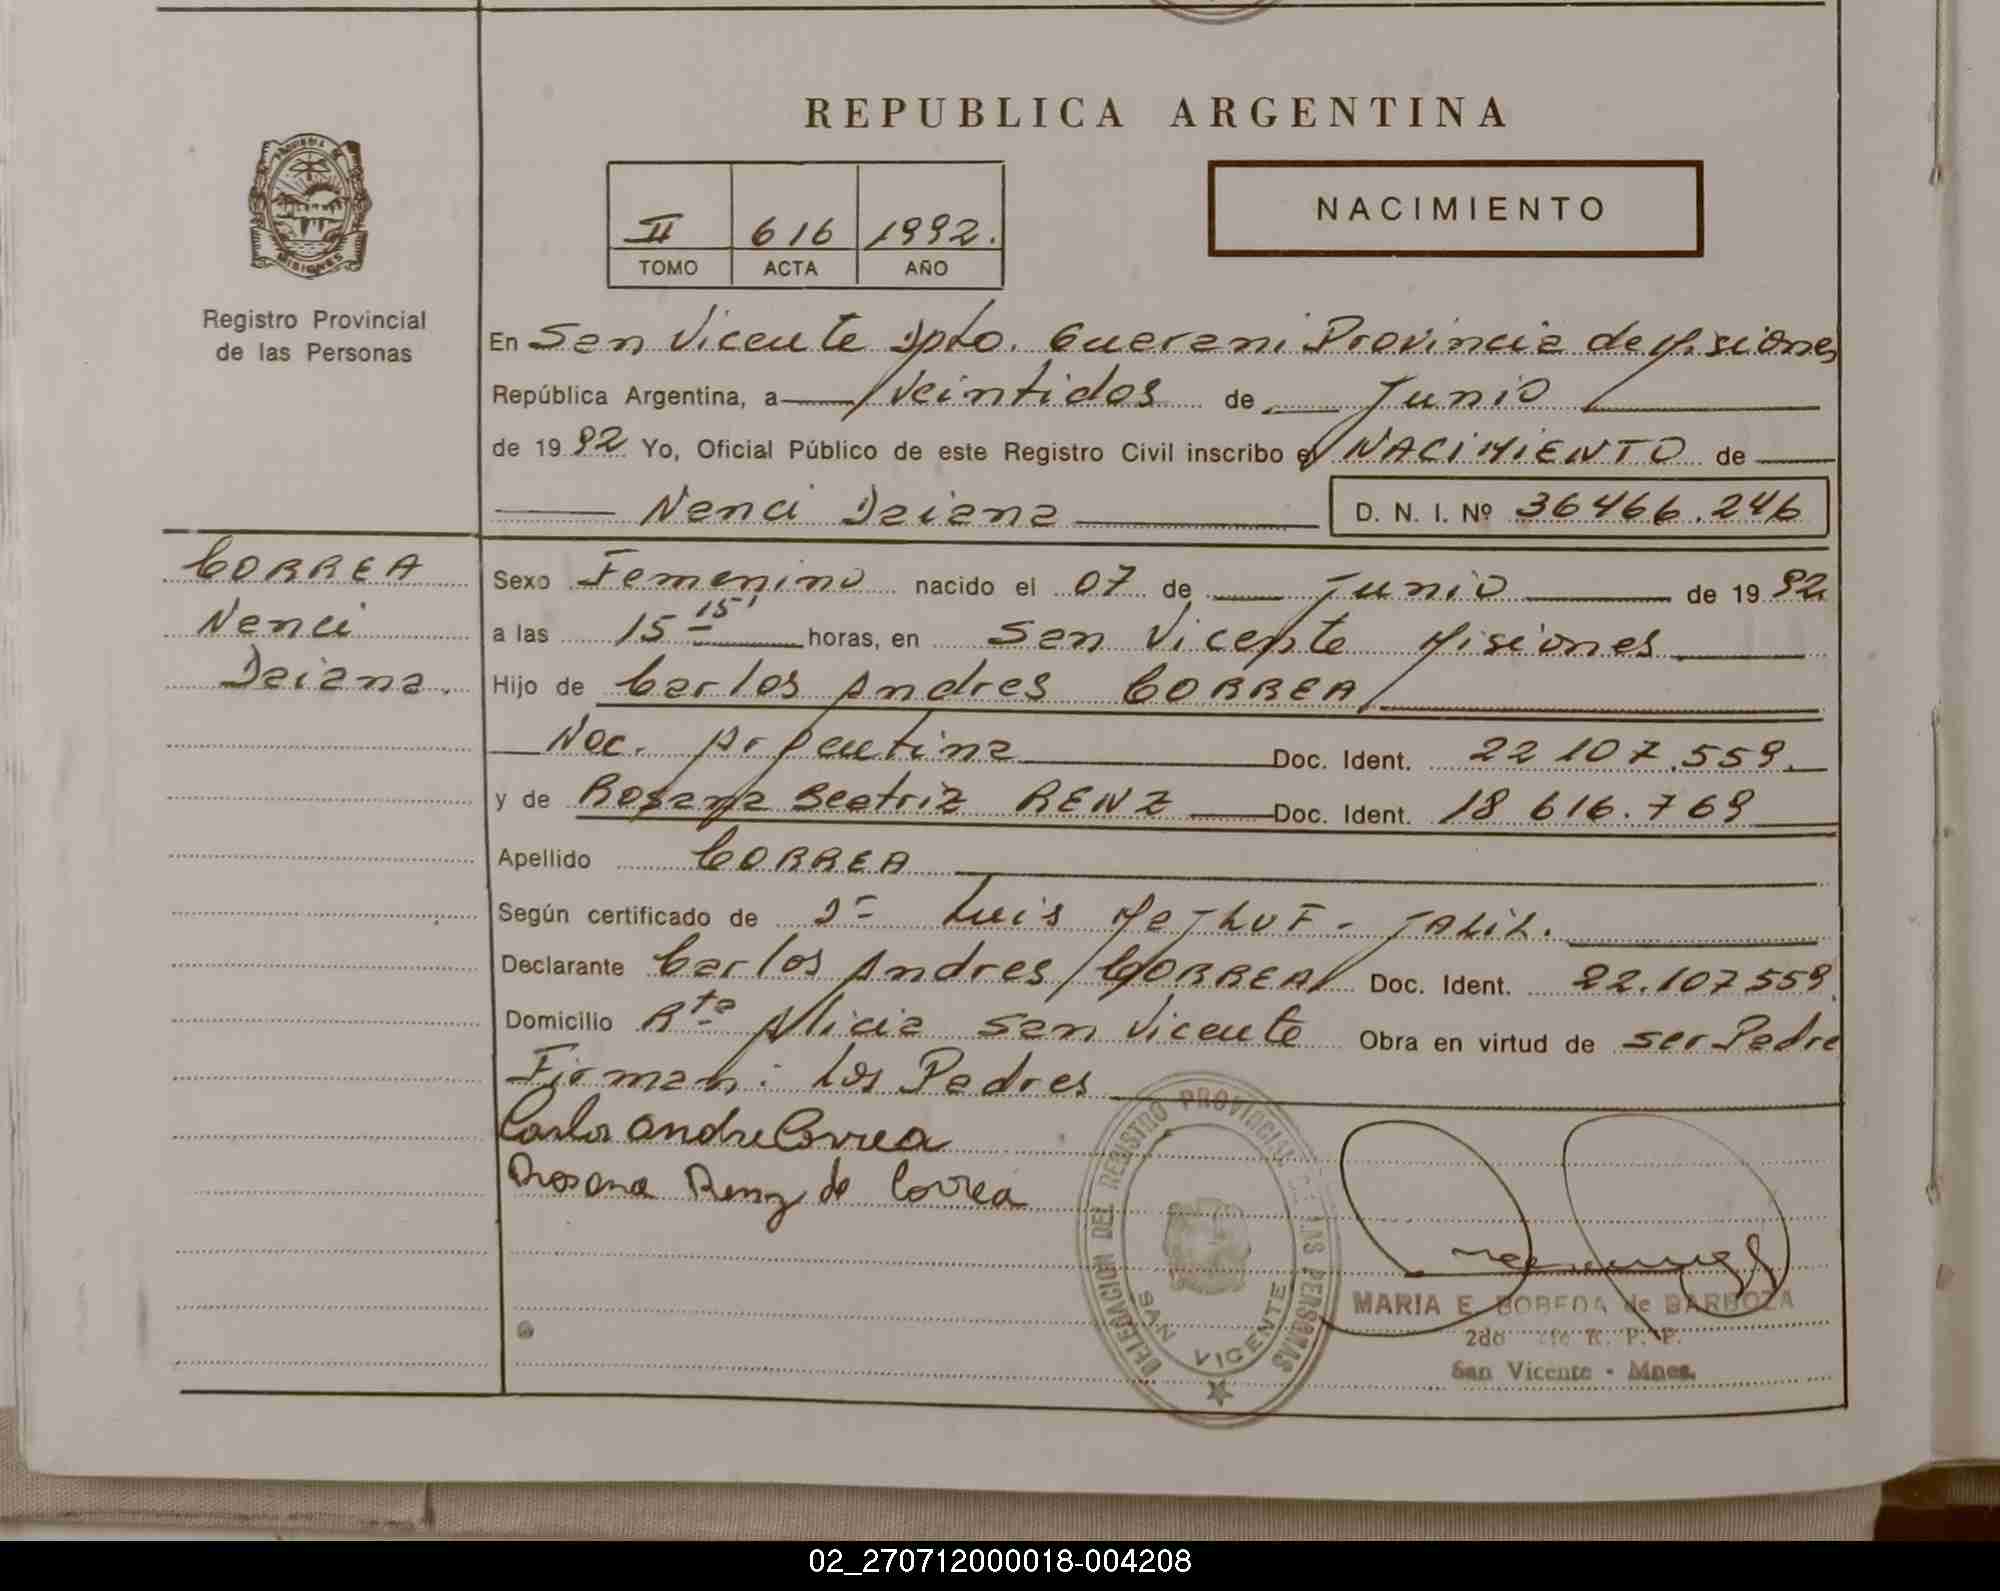 REPUBLICA ARGENTINA
PROVINCIA DE
MISIONES
Registro Provincial
de las Personas
II 616 1992.
TOMO ACTA AÑO
NACIMIENTO
En San Vicente Dpto. Guarani Provincia de Misiones
República Argentina, a Veintidos de Junio
de 1992 Yo, Oficial Público de este Registro Civil inscribo el NACIMIENTO de
Nanci Daiana D. N. I. Nº 36466.246
CORREA
Nanci
Daiana.
Sexo Femenino nacido el 07 de Junio de 1992
a las 15 15' horas, en San Vicente Misiones
Hijo de Carlos Andres CORREA
Nac. Argentina Doc. Ident. 22 107.559.
y de Rosana Beatriz RENZ Doc. Ident. 18 616.769
Apellido CORREA
Según certificado de Dr Luis MaJLUF - JALIL.
Declarante Carlos Andres CORREA Doc. Ident. 22.107559
Domicilio Rta Alicia San Vicente Obra en virtud de ser Padre
Firman: Los Padres
Carlos Andre Correa
Rosana Renz de Correa
DELEGACION DEL REGISTRO PROVINCIAL DE LAS PERSONAS
SAN VICENTE
MARIA E. BOBEDA de BARBOZA
2do R. P. P.
San Vicente - Mnes.
02_270712000018-004208